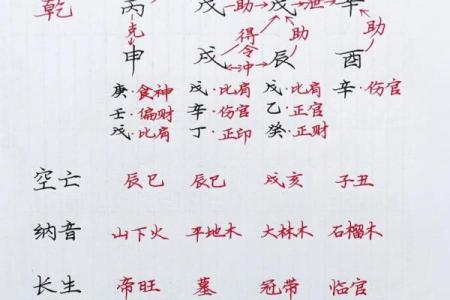 乾 丙 助 戊 戊 泄 辛
克 得 助 助
令
申 戌 冲 辰 酉
庚·食神 戊·比肩 戊·比肩 辛·伤官
壬·偏财 辛·伤官 乙·正官
戊·比肩 丁·正印 癸·正财
空亡 辰巳 辰巳 戌亥 子丑
纳音 山下火 平地木 大林木 石榴木
长生 帝旺 墓 冠带 临官